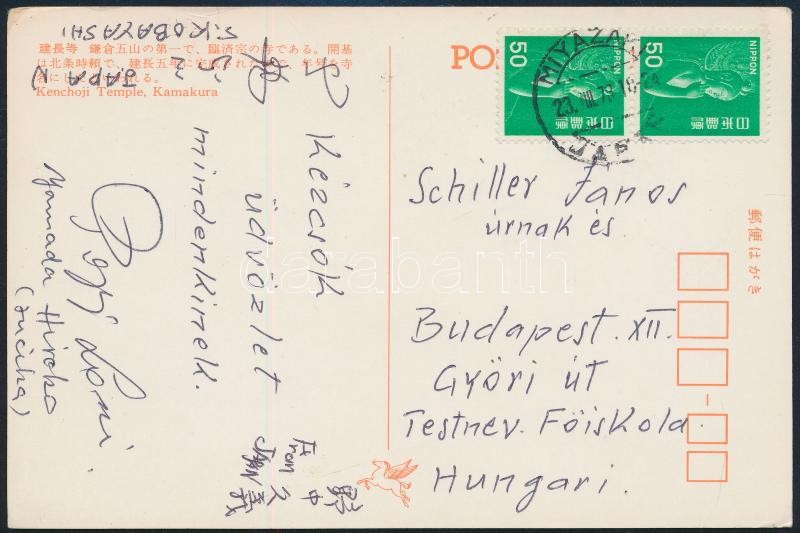 建長寺 鎌倉五山の第一で、臨済宗の寺である。開基
は北条時頼で、建長五年に完成された
Kenchoji Temple, Kamakura
S. KOBAYASHI
JAPAN
Kézcsók
üdvözlet
mindenkinek.
Papp Laci.
Yamada Hiroko
(zuciha)
From
JAPAN
野中久義
NIPPON 50
日本郵便
NIPPON 50
日本郵便
MIYAZAKI
23. VIII. 79. 18-24
JAPAN
Schiller János
úrnak és.
Budapest. XII.
Győri út
Testnev. Főiskola
Hungari.
郵便はがき
darabanth